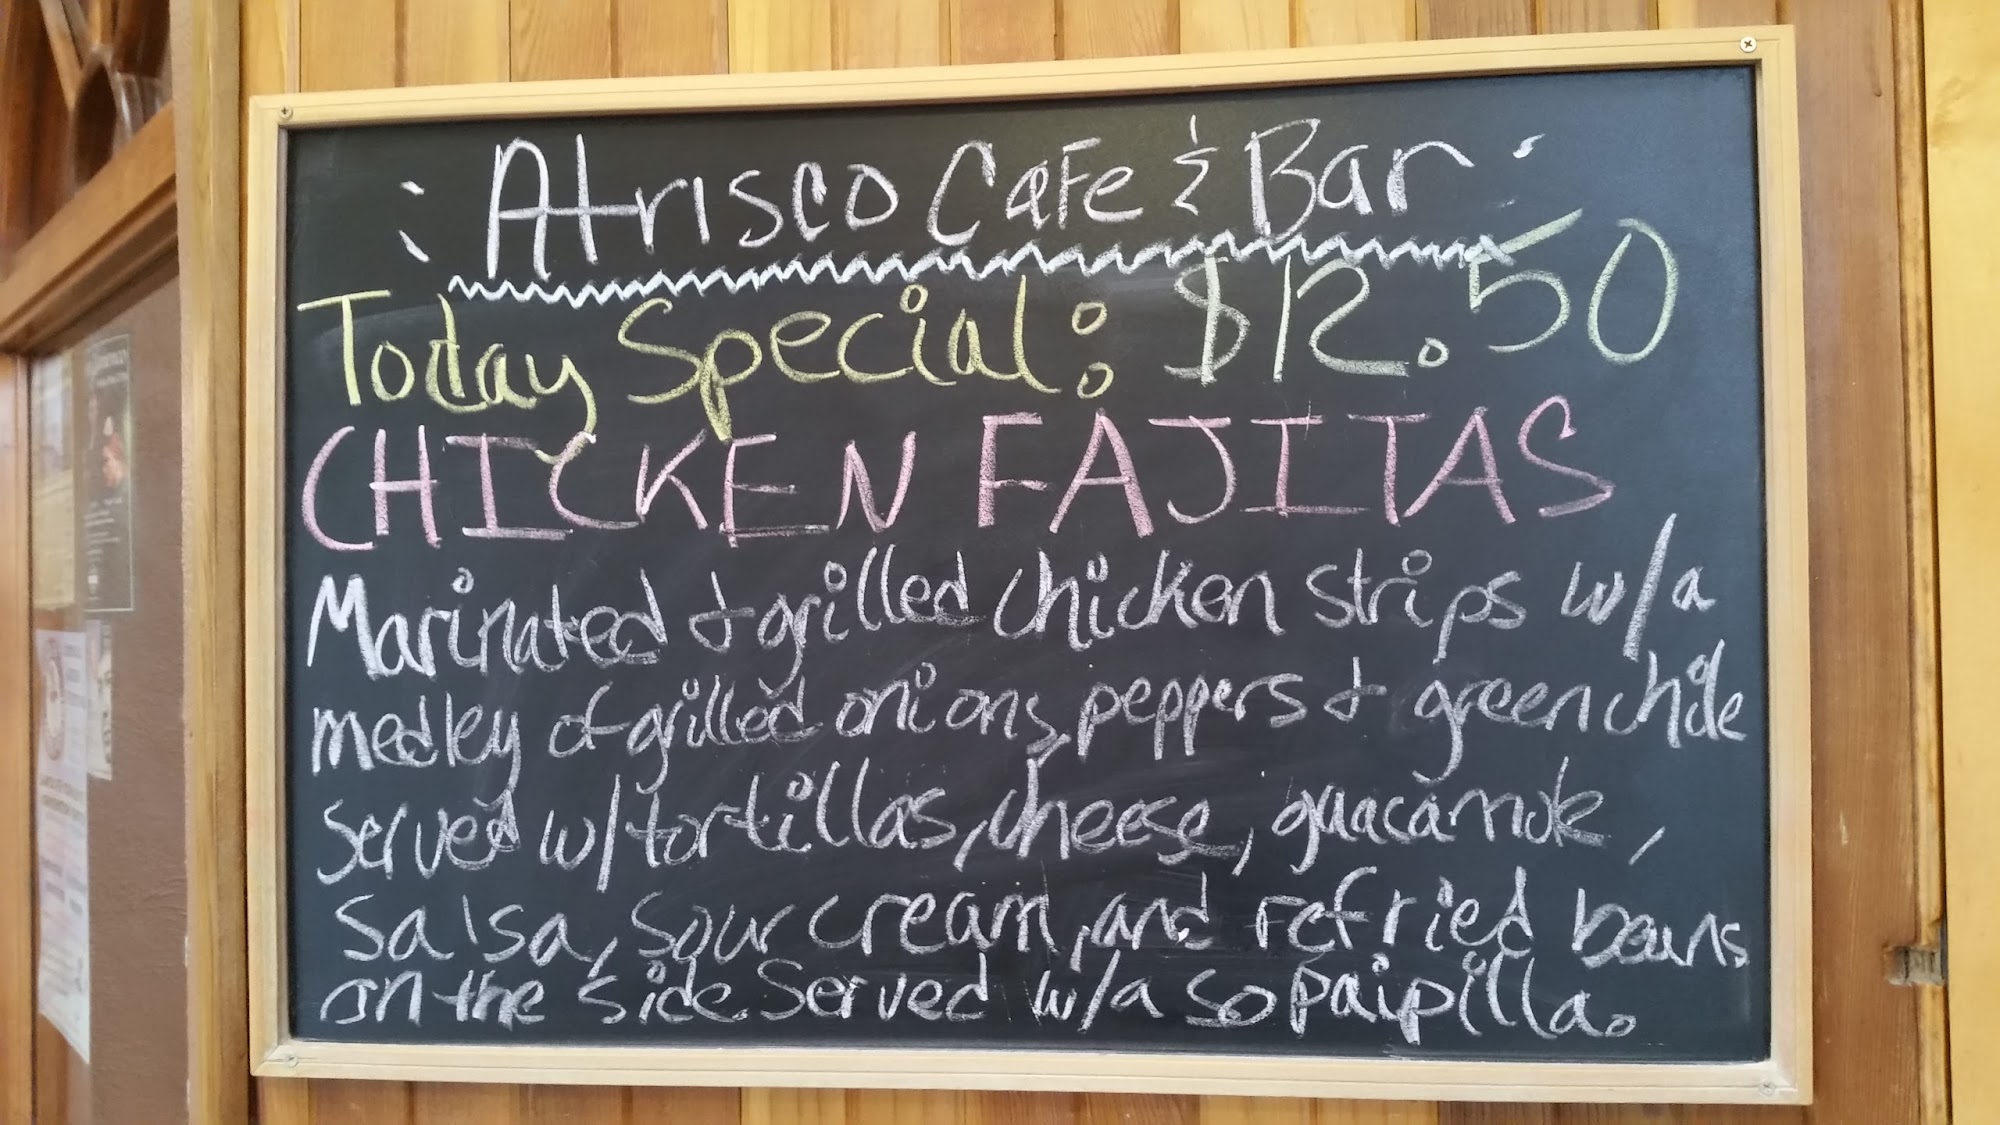 : Atrisco Cafe & Bar :
Today Special: $12.50
CHICKEN FAJITAS
Marinated & grilled chicken strips w/a
medley of grilled onions, peppers & green chile
served w/tortillas, cheese, guacamole,
salsa, sour cream, and refried beans
on the side. Served w/a sopaipilla.